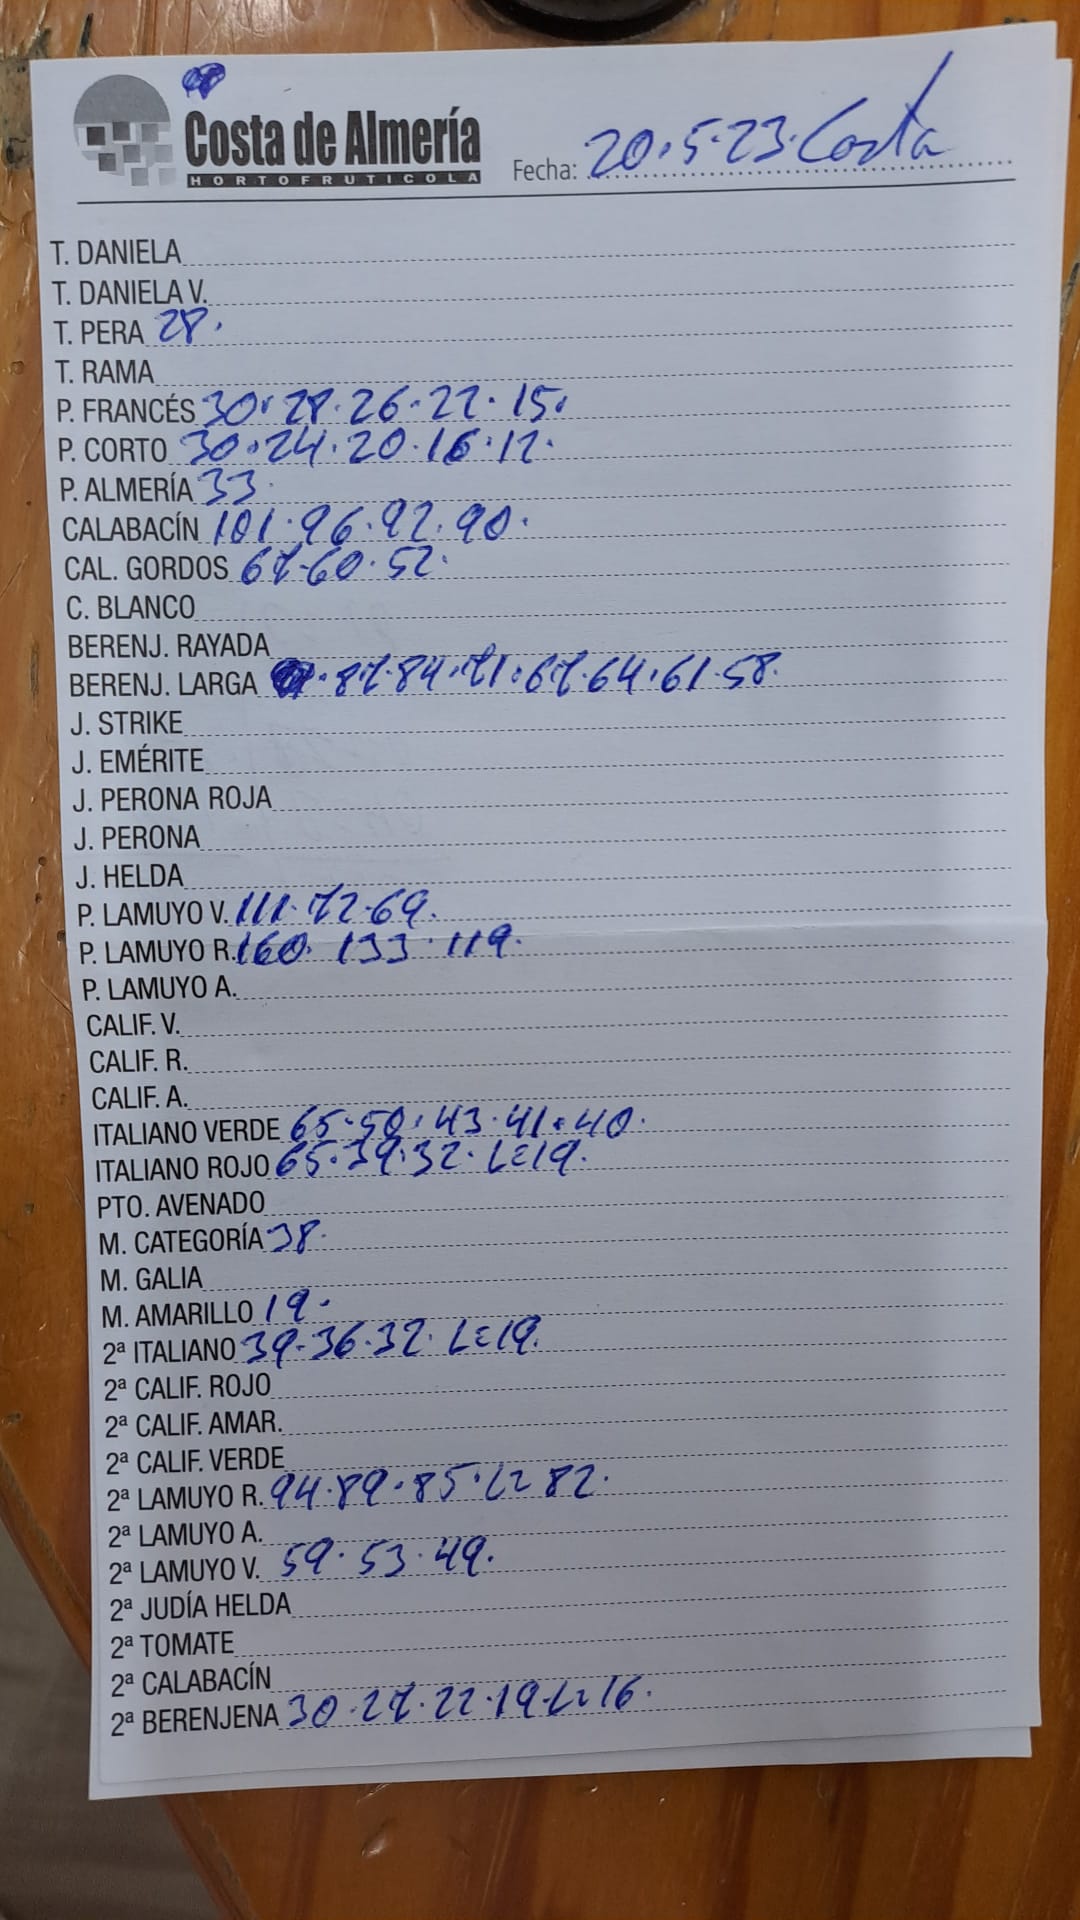 Costa de Almería
HORTOFRUTICOLA
Fecha: 20.5.23. Costa
T. DANIELA
T. DANIELA V.
T. PERA 28.
T. RAMA
P. FRANCÉS 30. 28. 26. 22. 15.
P. CORTO 30. 24. 20. 16. 12.
P. ALMERÍA 33.
CALABACÍN 101. 96. 92. 90.
CAL. GORDOS 67. 60. 52.
C. BLANCO
BERENJ. RAYADA
BERENJ. LARGA 87. 84. 71. 67. 64. 61. 58.
J. STRIKE
J. EMÉRITE
J. PERONA ROJA
J. PERONA
J. HELDA
P. LAMUYO V. 111. 72. 69.
P. LAMUYO R. 160. 133. 119.
P. LAMUYO A.
CALIF. V.
CALIF. R.
CALIF. A.
ITALIANO VERDE 65. 50. 43. 41. 40.
ITALIANO ROJO 65. 39. 32. LE19.
PTO. AVENADO
M. CATEGORÍA 38.
M. GALIA
M. AMARILLO 19.
2ª ITALIANO 39. 36. 32. LE19.
2ª CALIF. ROJO
2ª CALIF. AMAR.
2ª CALIF. VERDE
2ª LAMUYO R. 94. 89. 85. 82.
2ª LAMUYO A.
2ª LAMUYO V. 59. 53. 49.
2ª JUDÍA HELDA
2ª TOMATE
2ª CALABACÍN
2ª BERENJENA 30. 27. 22. 19. 16.